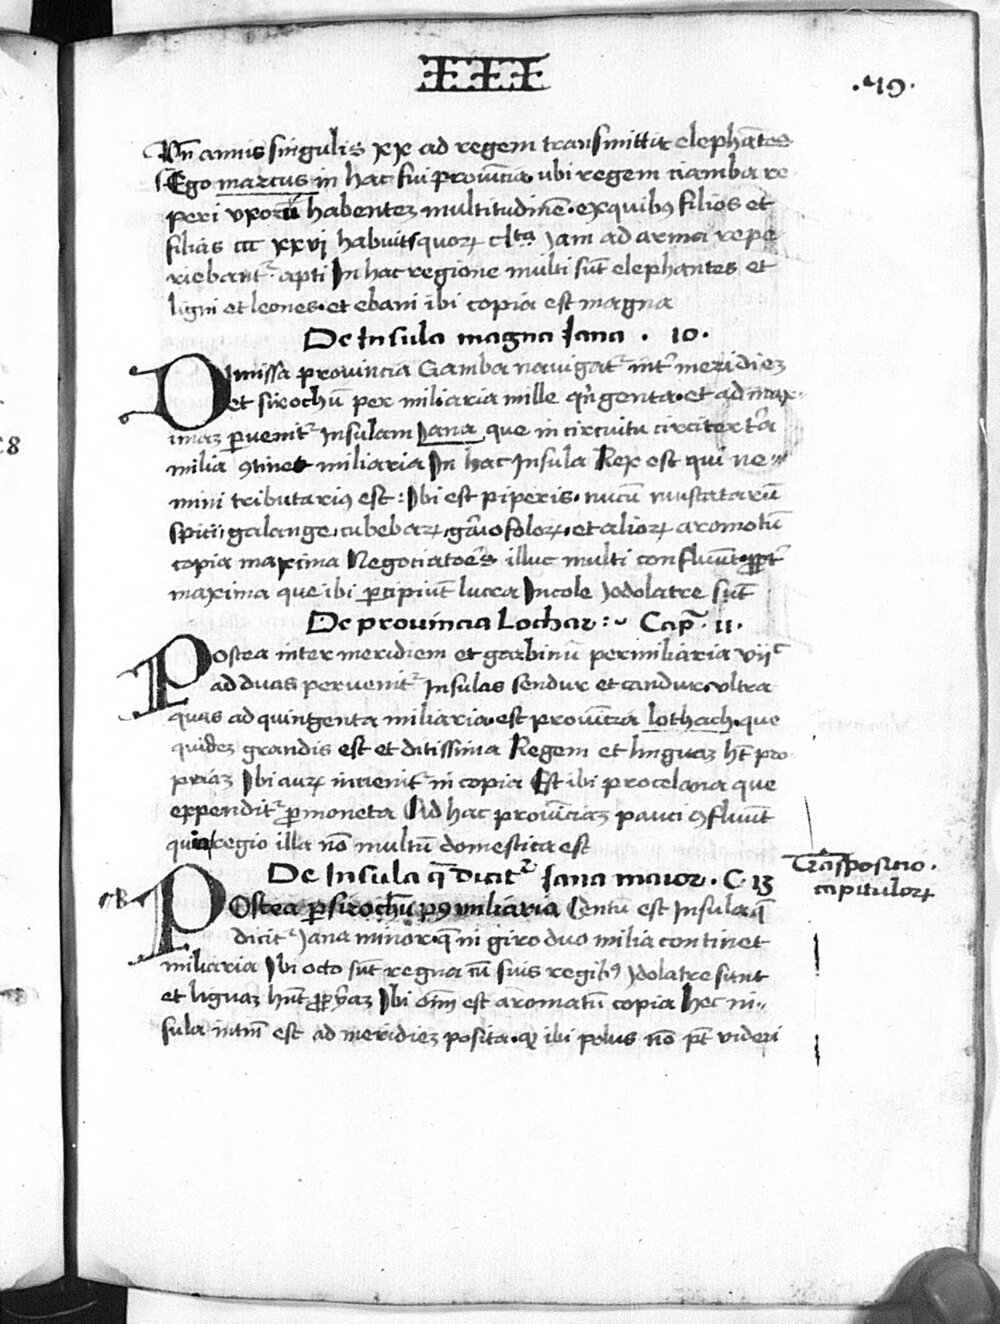 IIII
.79.
Vn annis singulis xx ad regem transmittit elephātes
Ego marcus in hac fui prouīcia ubi regem ciamba re
peri vxorū habentez multitudinē. ex quibꝰ filios et
filias ccc xxvi habuit quoꝝ clta jam ad arma repe
riebantᷣ apti In hac regione multi sūt elephantes et
ligni et leones. et ebani ibi copia est magna
De Insula magna Iana . 10.
Dimissa prouincia Ciamba nauigatᷣ intᷣ meridiez
et sirochū per miliaria mille qn̄genta. et ad max
imaz ꝑuenitᷣ Insulam Jana que in circuitu circiter tria
milia ꝯtinet miliaria In hac Insula Rex est qui ne
mini tributariꝰ est: Ibi est piperis. nucū muscatarū
spici galange. cubebaꝝ. gariofoloꝝ. et alioꝝ aromatū
copia maxima Negociatoēs illuc multi confluūt
maxima que ibi ꝑcipiūt lucra Incole Jdolatre sūt
De prouincia Lochac :~ Cap. 11.
Postea inter meridiem et garbinū per miliaria viiᶜ
ad duas peruenitᷣ Insulas sendur et candur. vltra
quas ad quingenta miliaria. est prouīcia lothach. que
quidez grandis est et ditissima Regem et linguaz ht̄ pro
priaz Ibi auꝝ inuenitᷣ in copia Est ibi procelana que
expenditᷣ ꝑ moneta Ad hac prouīciaz pauci ꝯfluūt
quia regio illa nō multū domestica est
Trāspositio .
capituloꝝ
De Insula q̄ dicitᷣ Jana maior . C. 13
B
Postea ꝑ sirochū p9 miliaria Centū est Insula q̄
dicitᷣ Jana minor. q̄ in giro duo milia continet
miliaria Ibi octo sūt regna cū suis regibꝰ Jdolatre sunt
et liguaz hn̄t ꝓpriaz Ibi oīm est aromatū copia Hec in
sula intm̄ est ad meridiez posita. qꝫ ibi polus nō pt̄ videri